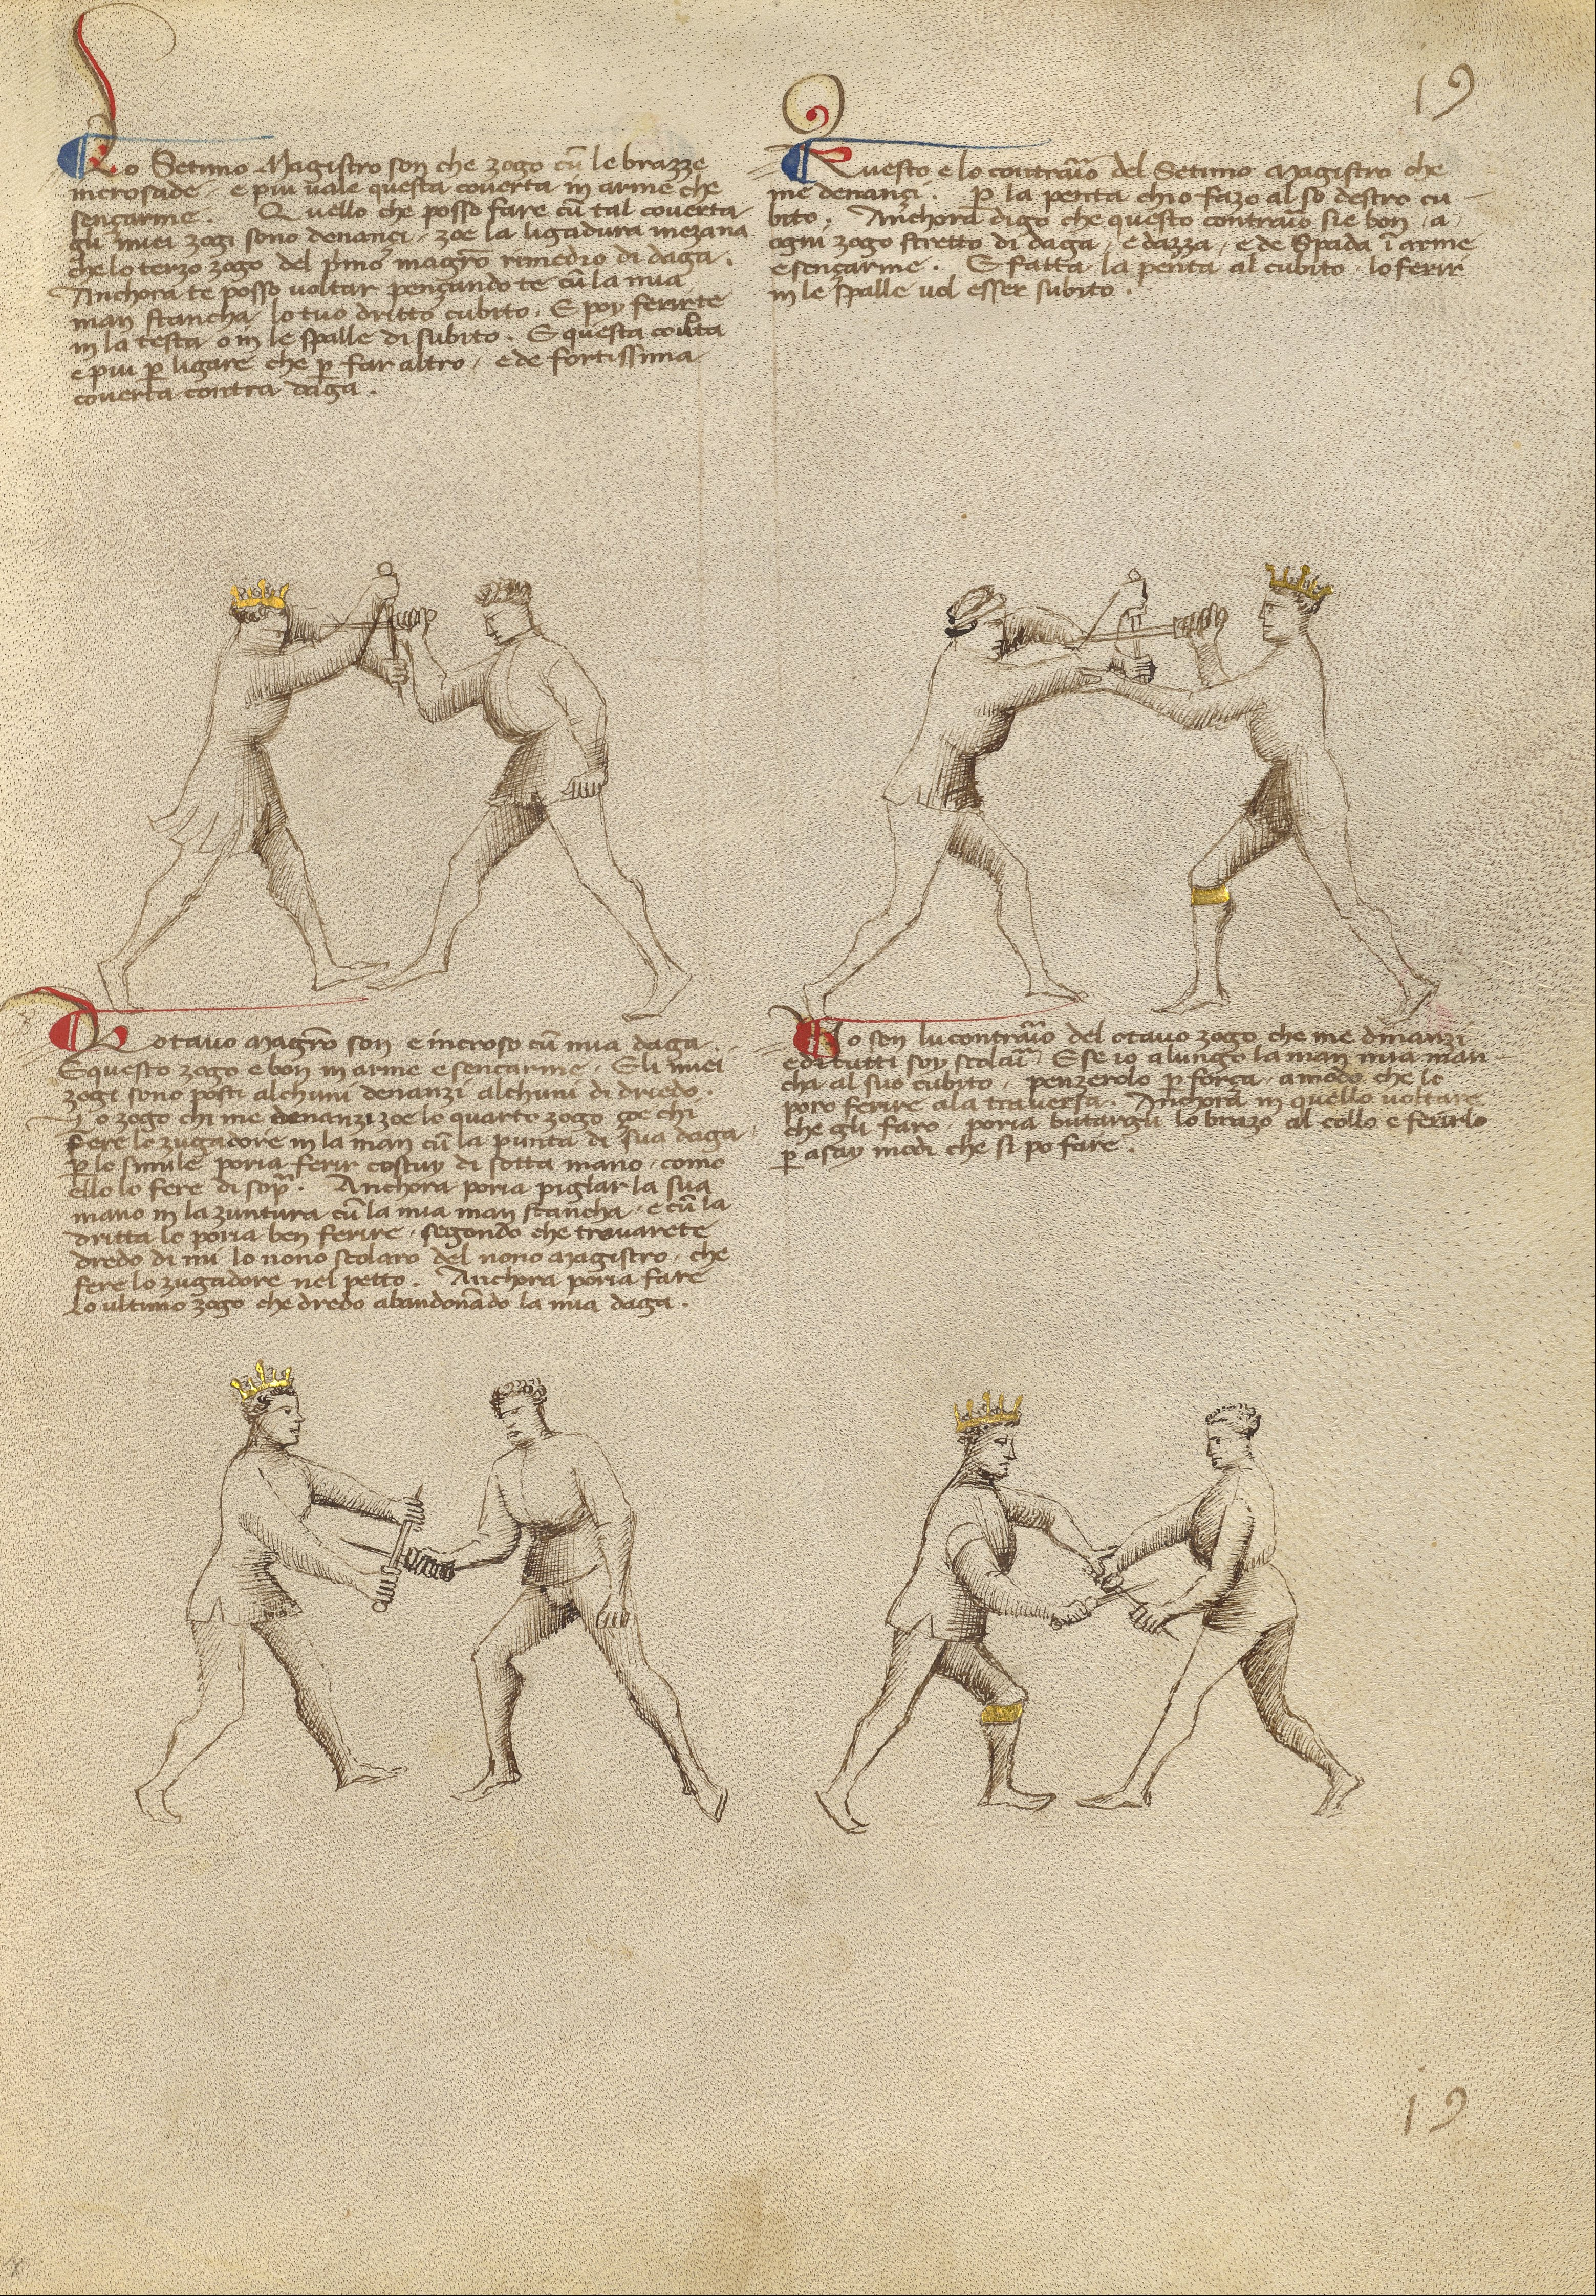 19
Lo Setimo Magistro son che zogo cũ le brazze
incrosade. e piu uale questa couerta in arme che
sençarme. Quello che posso fare cũ tal couerta
gli miei zogi sono denançi. zoe la ligadura mezana
che lo terzo zogo del pͥmo magr̃o rimedio di daga.
Anchora te posso uoltar pençando te cũ la mia
man stancha lo tuo dritto cubito. E poy ferirte
in la testa o in le spalle di subito. E questa couͥta
e piu p̲ ligare che p̲ far altro, e de fortissima
couerta contra daga.
Questo e lo contraͥio del Setimo Magistro che
me denançi. P̲ la penta ch'io fazo al so destro cu
bito. Anchora digo che questo contraͥio sie bon a
ogni zogo stretto di daga, e d'azza, e de Spada ĩ arme
e sençarme. E fatta la penta al cubito lo ferir
in le spalle uol esser subito.
Lo otauo Magr̃o son e incroso cũ mia daga.
E questo zogo e bon in arme e sençarme. E li miei
zogi sono posti alchuni denanzi alchuni di driedo.
Lo zogo chi me denanzi zoe lo quarto zogo çoe chi
fere lo zugadore in la man cũ la punta di sua daga
p̲ lo simile poria ferir costuy di sotta mano, como
ello lo fere di sopͣ. Anchora poria piglar la sua
mano in la zuntura cũ la mia man stancha, e cũ la
dritta lo poria ben ferire, segondo che trouarete
dredo di mi lo nono scolaro del nono Magistro, che
fere lo zugadore nel petto. Anchora poria fare
lo ultimo zogo che dredo abandonãdo la mia daga.
Io son lu contraͥio del otauo zogo che me dinanzi
e di tutti soy scolaͥi E se io alungo la man mia man
cha al suo cubito, penzerolo p̲ força, a modo che lo
poro ferire a la trauersa. Anchora in quello uoltare
che gli faro, poria butargli lo brazo al collo e ferirlo
p̲ asay modi che si po fare.
19